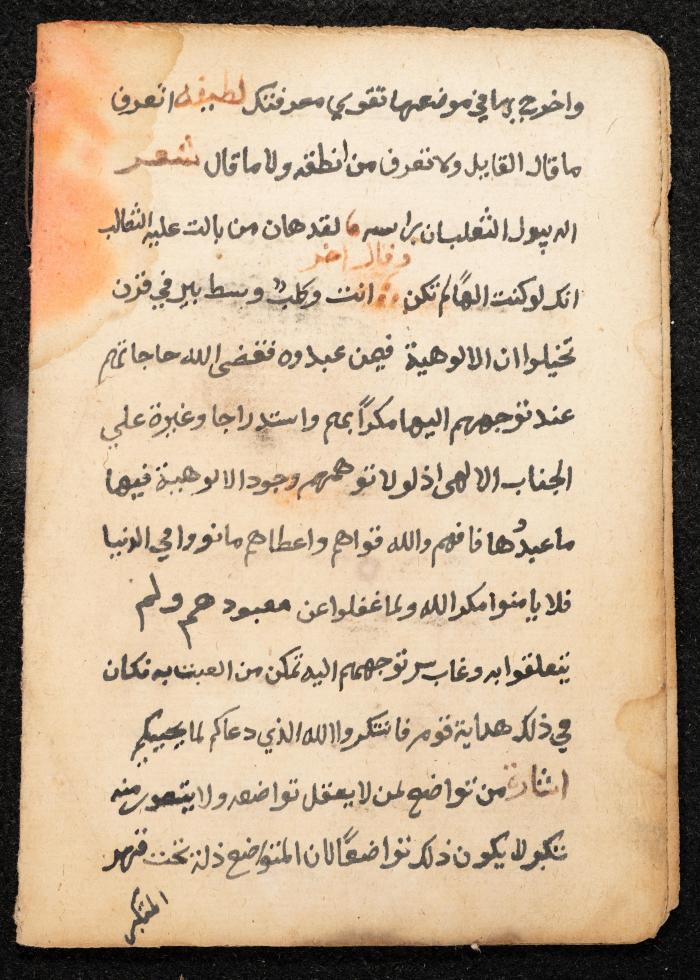 واخرج بها في موضعها تقوي معرفتك لطيفة اتعرف
ما قال القايل ولا تعرف من انطقه ولا ما قال شعر
اله يبول الثعلبان براسه لقد هان من بالت عليه الثعالب
وقال اخر
انك لو كنت الهًا لم تكن انت وكلب وسط بير في قرن
تخيلوا ان الالوهية فيمن عبدوه فقضى الله حاجاتهم
عند توجههم اليها مكرًا بهم واستدراجا وغيرة علي
الجناب الالهى اذ لولا توهمهم وجود الالوهية فيها
ما عبدُها فافهم والله قواهم واعطاهم ما نووا في الدنيا
فلا يامنوا مكر الله ولما غفلوا عن معبودهم ولم
يتعلقوا به وغاب سر توجههم اليه تمكن من العبث به فكان
في ذلك هداية قوم فاشكروا الله الذي دعاكم لما يحييكم
اشارة من تواضع لمن لا يعقل تواضعه ولا يتصور منه
تكبر لا يكون ذلك تواضعًا لان المتواضع ذلة تحت قهر
المتكبر